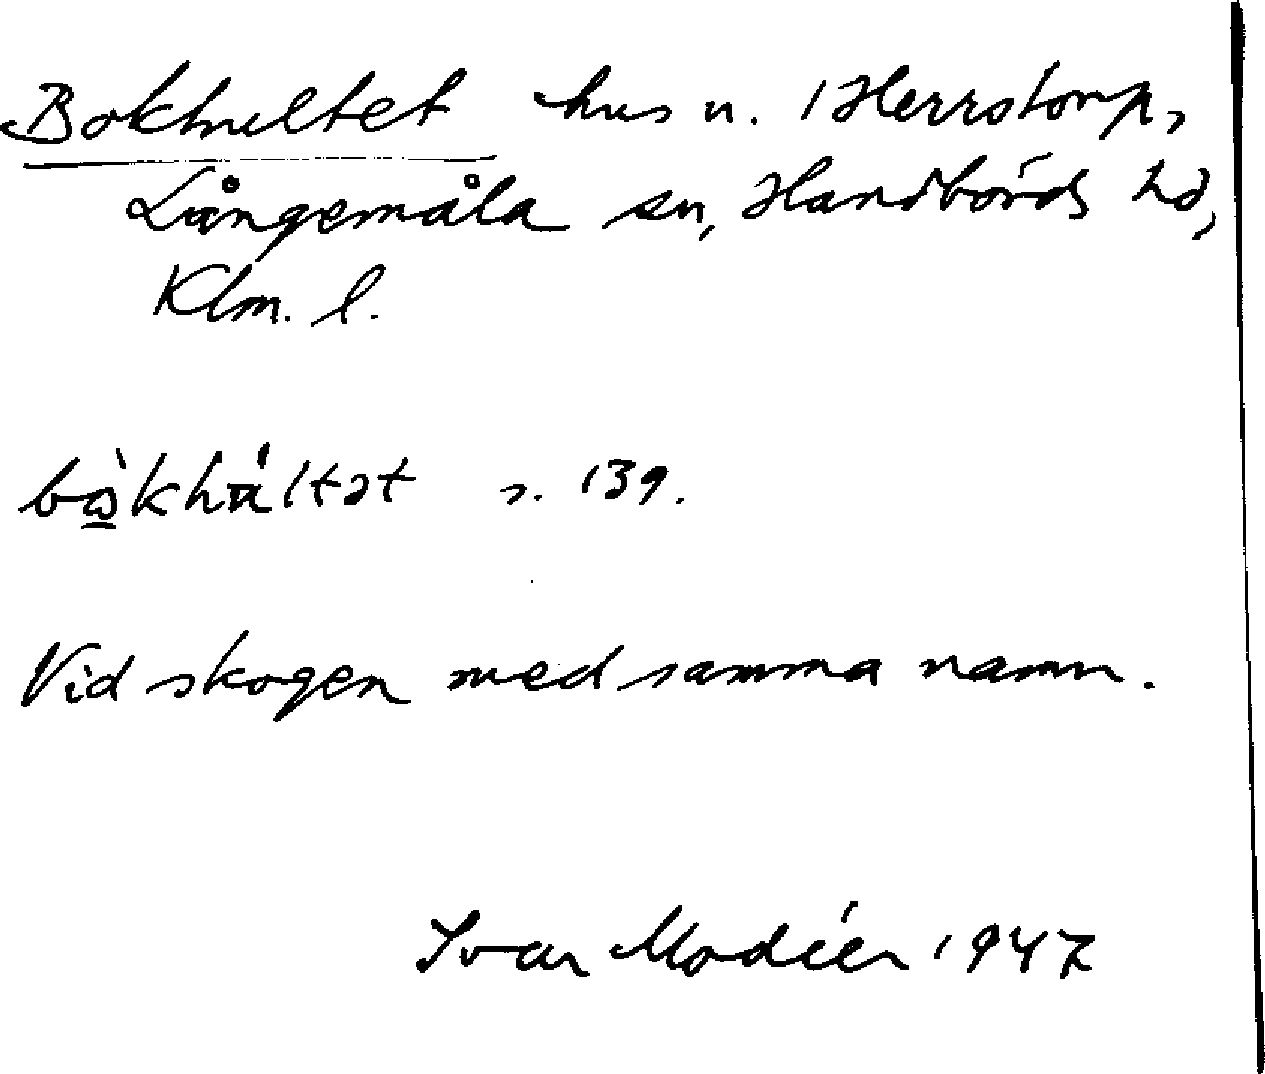 Bokhultet hus u. Herrstorp,
Långemåla sn, Handbörds hd,
Klm. l.
bò̲khúltət s. 139.
Vid skogen med samma namn.
Ivar Modéer 1947